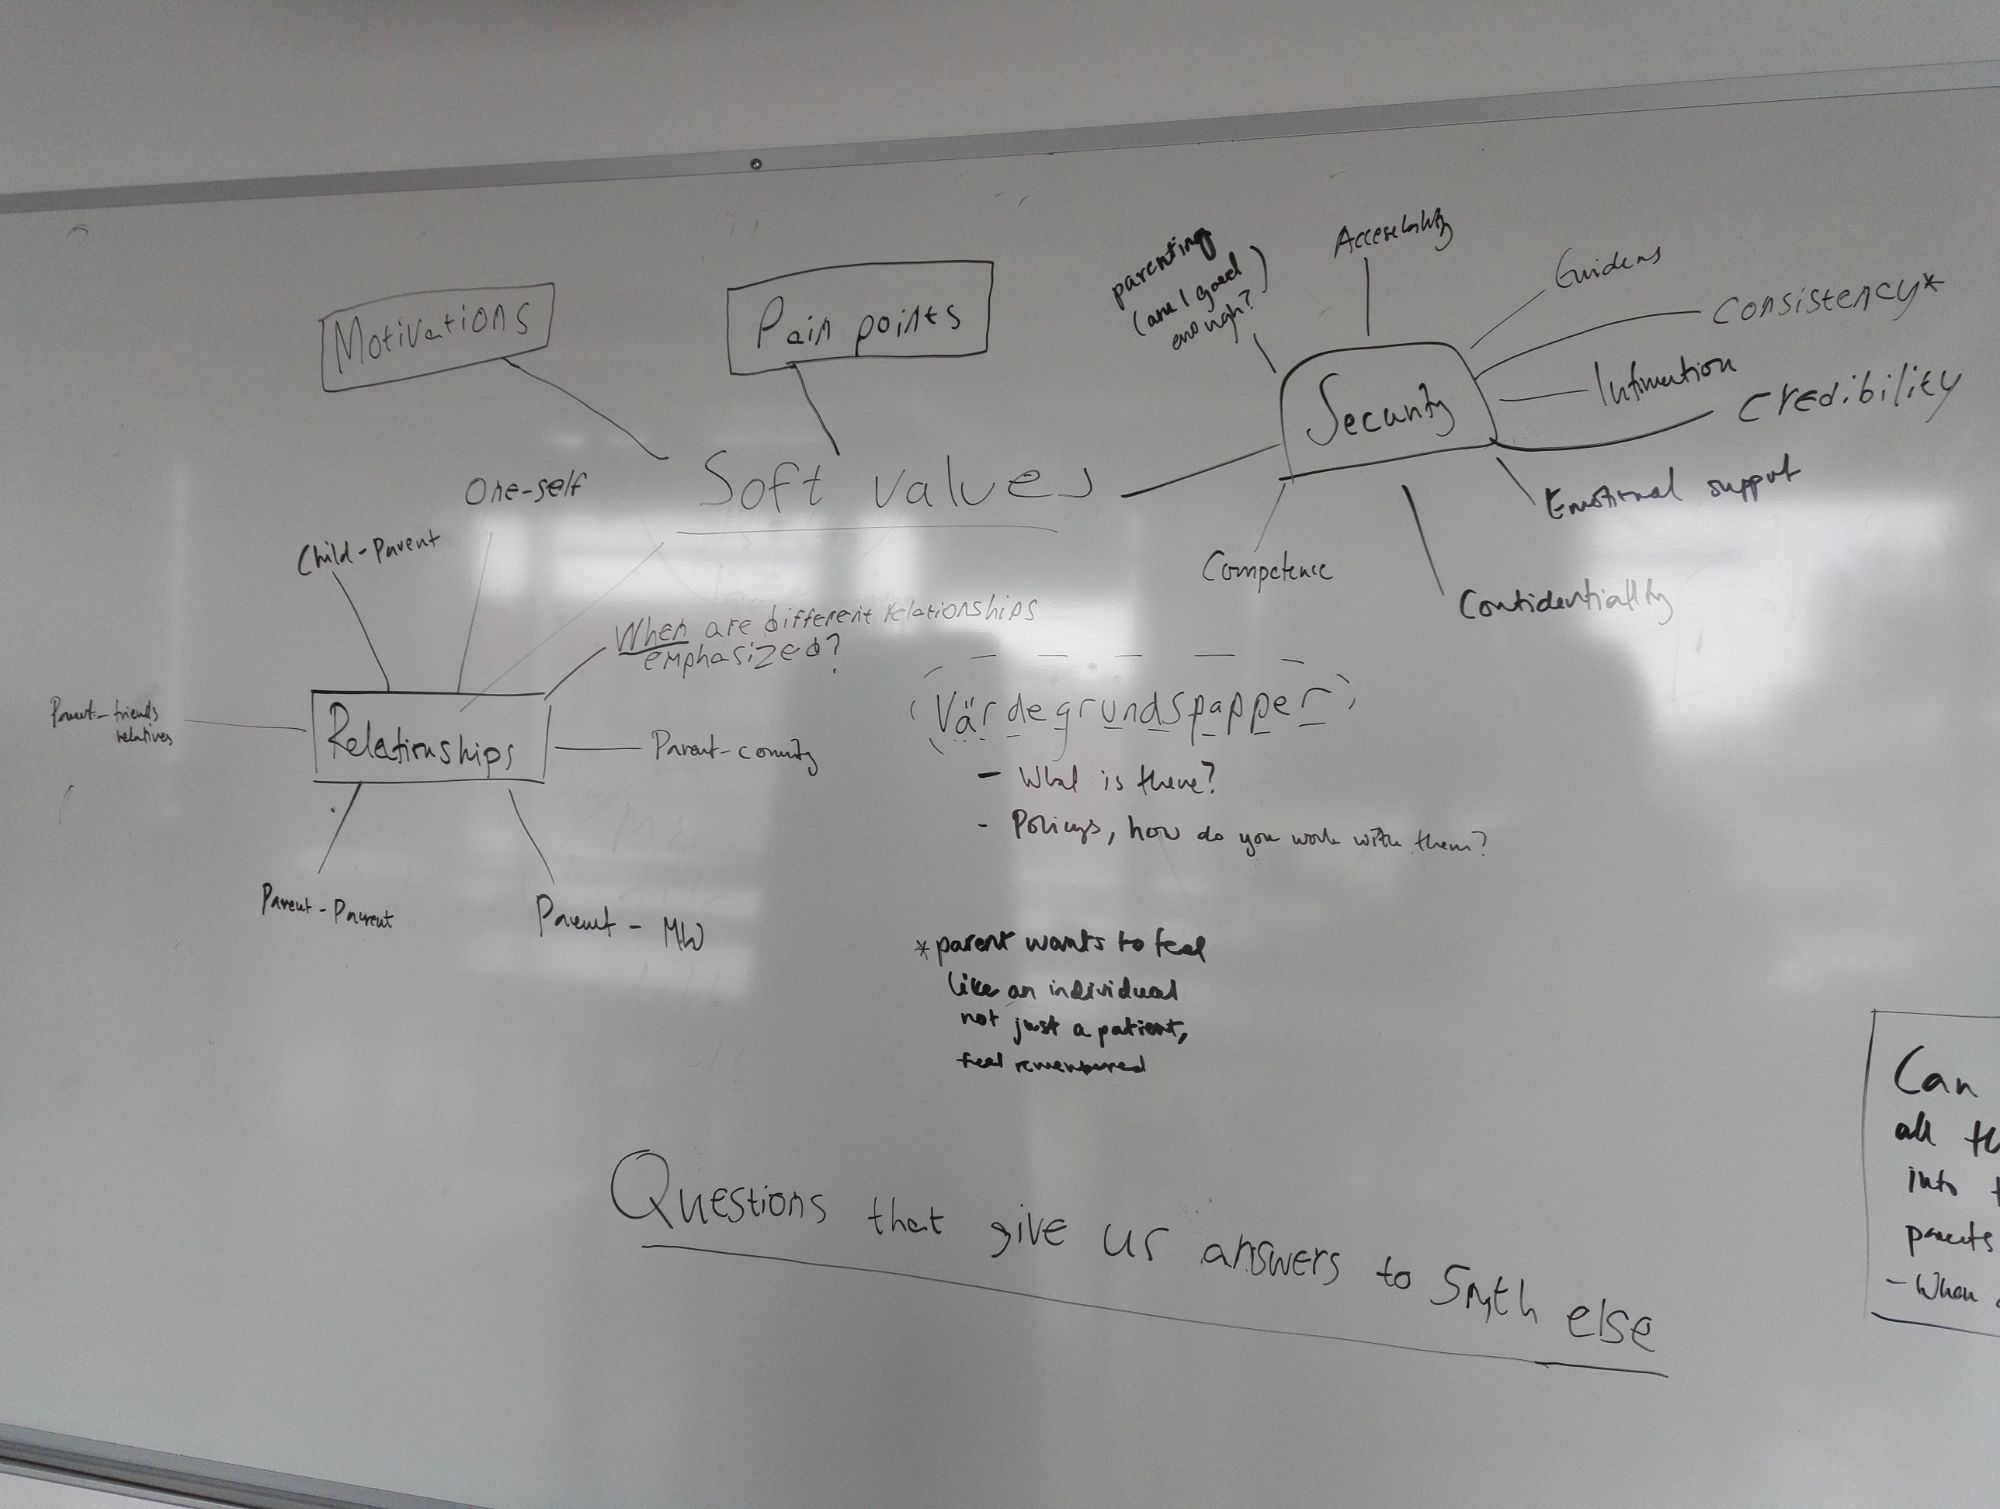 Motivations
Pain points
parenting
(am I good
enough?)
Guidens
Consistency*
Security
Credibility
Soft values
One-self
Child-Parent
Emotional support
Competence
Confidentiallty
When are different relationships
emphasized?
Värdegrundspapper
- What is there?
- Policys, how do you work with them?
Parent-friends
relatives
Relationships
Parent-Parent
Parent - MW
*parent wants to feel
like an individual
not just a patient,
feel remembered
Questions that give us answers to Smth else
Can
all
into
parents
- When